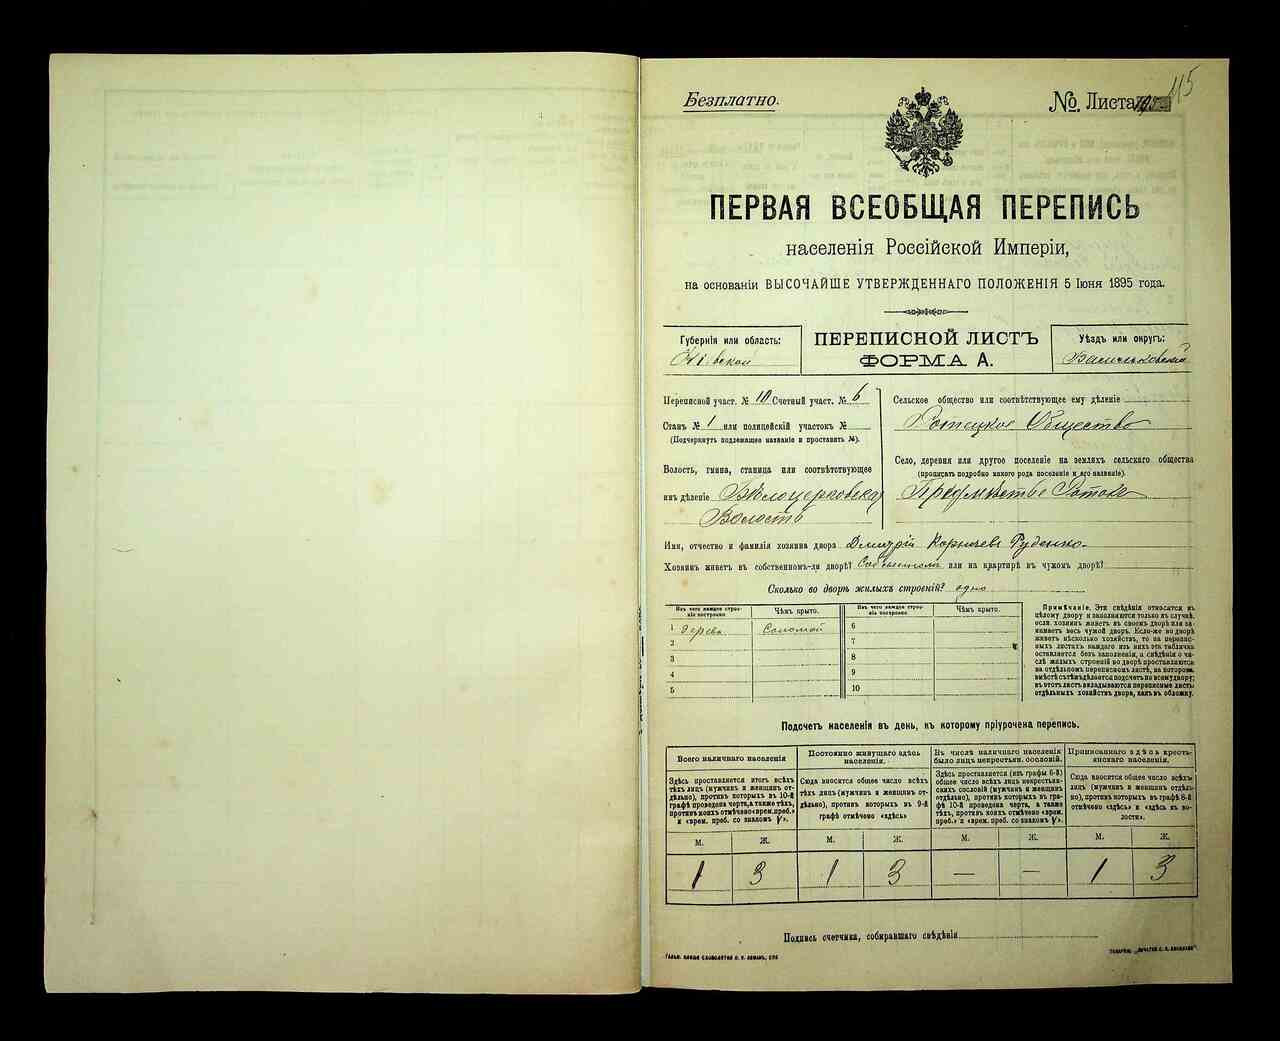 115
Безплатно.
№ Листа
ПЕРВАЯ ВСЕОБЩАЯ ПЕРЕПИСЬ
населенія Россійской Имперіи,
на основаніи ВЫСОЧАЙШЕ УТВЕРЖДЕННАГО ПОЛОЖЕНІЯ 5 Іюня 1895 года.
Губернія или область:
Кіевской
ПЕРЕПИСНОЙ ЛИСТЪ
ФОРМА А.
Уѣздъ или округъ:
Васильковскій
Переписной участ. № 10 Счетный участ. № 6
Станъ № 1 или полицейскій участокъ №
(Подчеркнуть подлежащее названіе и проставить №).
Волость, гмина, станица или соотвѣтствующее
имъ дѣленіе Бѣлоцерковская
Волость
Сельское общество или соотвѣтствующее ему дѣленіе
Ротецкое Общество
Село, деревня или другое поселеніе на земляхъ сельскаго общества
(прописать подробно какого рода поселеніе и его названіе).
Предмѣстье Ротокъ
Имя, отчество и фамилія хозяина двора Дмитрій Корніевъ Руденко
Хозяинъ живетъ въ собственномъ-ли дворѣ? Собственномъ или на квартирѣ въ чужомъ дворѣ?
Сколько во дворѣ жилыхъ строеній? одно
Изъ чего каждое строеніе построено.
Чѣмъ крыто.
Изъ чего каждое строеніе построено.
Чѣмъ крыто.
1 дерева Соломой
2
3
4
5
6
7
8
9
10
Примѣчаніе. Эти свѣдѣнія относятся къ
цѣлому двору и заполняются только въ случаѣ,
если хозяинъ живетъ въ своемъ дворѣ или за-
нимаетъ весь чужой дворъ. Если-же во дворѣ
живетъ нѣсколько хозяйствъ, то на перепис-
ныхъ листахъ каждаго изъ нихъ эта табличка
оставляется безъ заполненія, а свѣдѣнія о чи-
слѣ жилыхъ строеній во дворѣ проставляются
на отдѣльномъ переписномъ листѣ, на которомъ
вмѣстѣ съ тѣмъ дѣлается подсчетъ по всему двору;
въ этотъ листъ вкладываются переписные листы
отдѣльныхъ хозяйствъ двора, какъ въ обложку.
Подсчетъ населенія въ день, къ которому пріурочена перепись.
Всего наличнаго населенія
Здѣсь проставляется итогъ всѣхъ
тѣхъ лицъ (мужчинъ и женщинъ от-
дѣльно), противъ которыхъ въ 10-й
графѣ проведена черта, а также тѣхъ,
противъ коихъ отмѣчено «врем. преб.»
и «врем. преб. со знакомъ V».
Постоянно живущаго здѣсь
населенія.
Сюда вносится общее число всѣхъ
тѣхъ лицъ (мужчинъ и женщинъ от-
дѣльно), противъ которыхъ въ 9-й
графѣ отмѣчено «здѣсь»
Въ числѣ наличнаго населенія
было лицъ некрестьян. сословій.
Здѣсь проставляется (изъ графы 6-й)
общее число всѣхъ лицъ некрестьян-
скихъ сословій (мужчинъ и женщинъ
отдѣльно), противъ которыхъ въ гра-
фѣ 10-й проведена черта, а также
тѣхъ, противъ коихъ отмѣчено «врем.
преб.» и «врем. преб. со знакомъ V».
Приписаннаго здѣсь кресть-
янскаго населенія.
Сюда вносится общее число всѣхъ
лицъ (мужчинъ и женщинъ отдѣль-
но), противъ которыхъ въ графѣ 8-й
отмѣчено «здѣсь» и «здѣсь въ во-
лости».
М. Ж. М. Ж. М. Ж. М. Ж.
1 3 1 3 — — 1 3
Подпись счетчика, собиравшаго свѣдѣнія